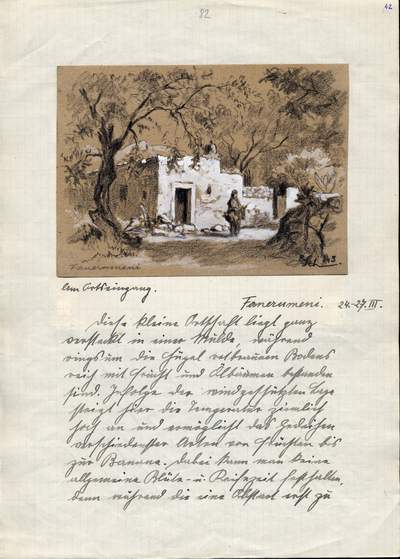 82
42
Fanerumeni
Sch. 43
Am Ortseingang.
Fanerumeni. 24.-27. III.
Diese kleine Ortschaft liegt ganz
versteckt in einer Mulde, während
rings um die Hügel rotbraunen Bodens
reich mit Frucht und Ölbäumen bestanden
sind. Infolge der windgeschützten Lage
steigt hier die Temperatur ziemlich
hoch an und ermöglicht das Gedeihen
verschiedenster Arten von Früchten bis
zur Banane. Dabei kann man keine
allgemeine Blüte- u. Reifezeit festhalten,
denn während die eine Obstart erst zu